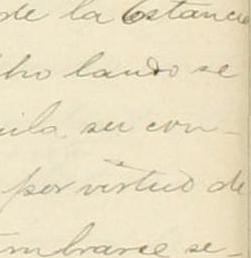 de la Estancia
cho lando se
uila, su con-
por virtud de
mbrarse se-